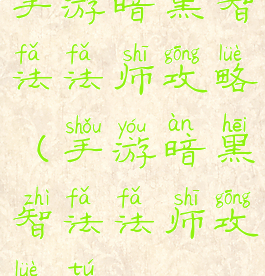 手游暗黑智
fǎ fǎ shī gōng lüè
法法师攻略
shǒu yóu àn hēi
（手游暗黑
zhì fǎ fǎ shī gōng
智法法师攻
lüè tú